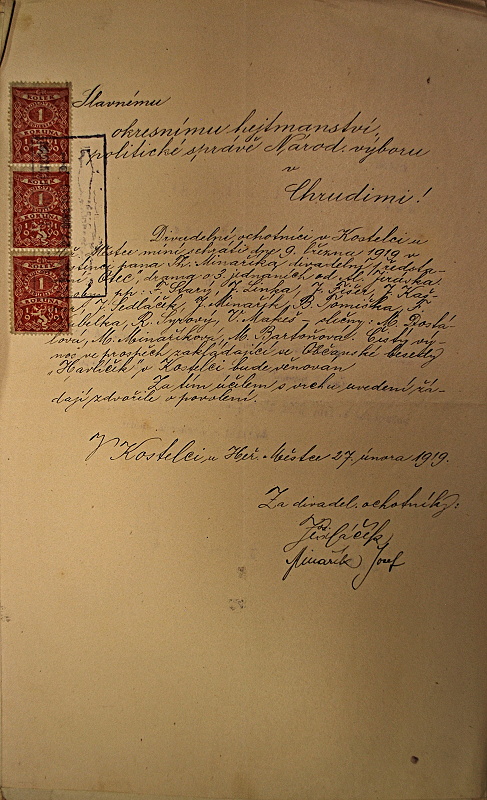 KOLEK
1
KORUNA
KOLEK
1
KORUNA
KOLEK
1
KORUNA
Slavnému
okresnímu hejtmanství,
politické správě Národ. výboru
v
Chrudimi!
Divadelní ochotníci v Kostelci u
Heř. Městce míní sehráti dny 9. března 1919 v
hostinci pana F. Minaříka divadelní předsta-
vení Otec, drama o 3 jednáních od
pp.: F. Starý, J. Linka, J. Kaš-
J. Sedláček, J. Minařík, B. Tomiška, F.
R. Syrový, V. Makeš, slečny: M. Dostá-
lova, M. Minaříkova, M. Bartoňova. Čistý vý-
nos ve prospěch zakládající se Občanské besedy
Havlíček v Kostelci bude věnován
Za tím účelem s vrchu uvedení žá-
dají zdvořile o povolení.
V Kostelci u Heř. Městce 27. února 1919.
Za divadel. ochotníky:
Minařík Josef